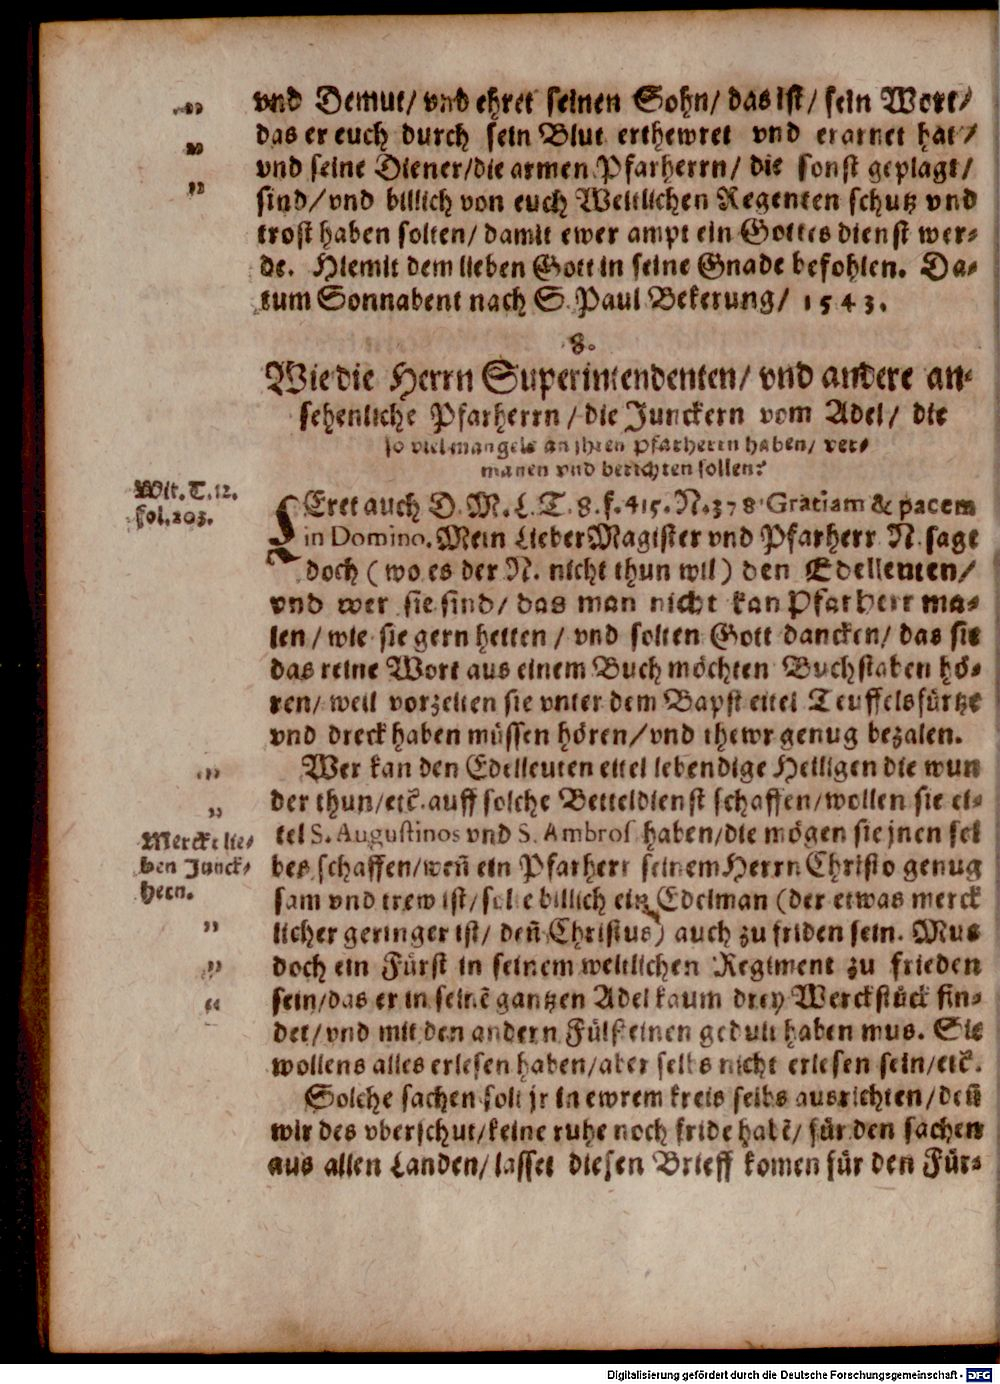 vnd Demut/ vnd ehret seinen Sohn/ das ist/ sein Wort/
das er euch durch sein Blut erthewret vnd erarnet hat/
vnd seine Diener/die armen Pfarherrn/ die sonst geplagt/
sind/vnd billich von euch Weltlichen Regenten schutz vnd
trost haben solten/ damit ewer ampt ein Gottes dienst wer-
de. Hiemit dem lieben Gott in seine Gnade befohlen. Da-
tum Sonnabent nach S. Paul Bekerung/ 1543.
8.
Wie die Herrn Superintendenten/ vnd andere an-
sehenliche Pfarherrn/die Junckern vom Adel/ die
so viel mangels an jhren Pfarherrn haben/ ver-
manen vnd berichten sollen?
Wit. T. 12.
fol. 203.
LEret auch D. M. L. T. 8. f. 415. N. 378 Gratiam & pacem
in Domino. Mein Lieber Magister vnd Pfarherr N. sagt
doch (wo es der N. nicht thun wil) den Edelleuten/
vnd wer sie sind/ das man nicht kan Pfarherr ma-
len/wie sie gern hetten/ vnd solten Gott dancken/ das sie
das reine Wort aus einem Buch möchten Buchstaben hö-
ren/ weil vorzeiten sie vnter dem Bapst eitel Teuffelsfürtze
vnd dreck haben müssen hören/vnd thewr genug bezalen.
Wer kan den Edelleuten eitel lebendige Heiligen die wun
der thun/etc. auff solche Betteldienst schaffen/wollen sie ei-
tel S. Augustinos vnd S. Ambros haben/die mögen sie jnen sel
bes schaffen/weñ ein Pfarherr seinem Herrn Christo genug
Mercke lie-
ben Junck-
hern.
sam vnd trew ist/solte billich ein Edelman (der etwas merck
licher geringer ist/ deñ Christus) auch zu friden sein. Mus
doch ein Fürst in seinem weltlichen Regiment zu frieden
sein/das er in seinē gantzen Adel kaum drey Werckstück fin-
det/vnd mit den andern Fülsteinen gedult haben mus. Sie
wollens alles erlesen haben/aber selbs nicht erlesen sein/etc.
Solche sachen solt jr in ewrem kreis selbs ausrichten/deñ
wir des vberschut/keine ruhe noch fride habē/ für den sachen
aus allen Landen/lasset diesen Brieff komen für den Für-
Digitalisierung gefördert durch die Deutsche Forschungsgemeinschaft - DFG